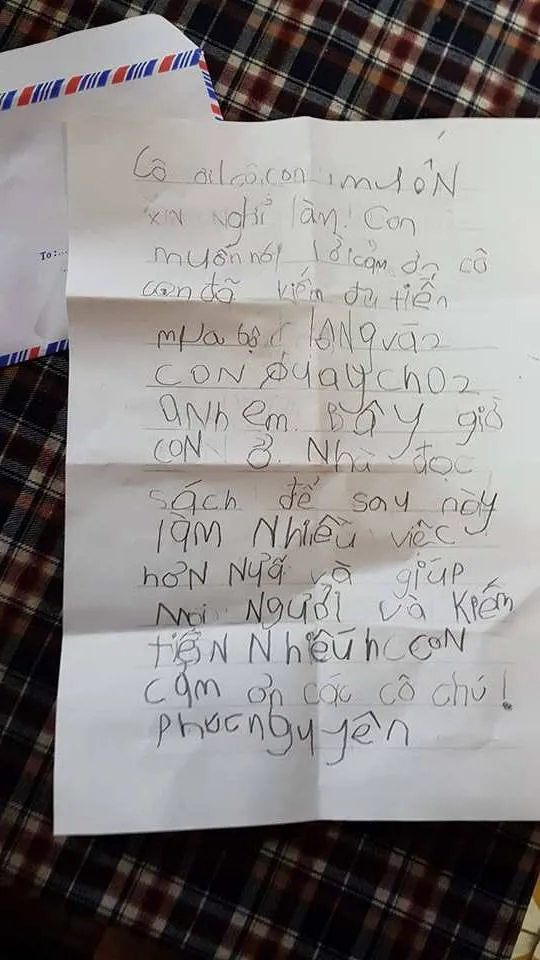 To:...
Cô ơi cô, con muốN
xIN Nghỉ làm! Con
muốn nói lời cảm ơn cô
con đã kiếm đủ tiền
mua bộ
CON quay cho 2
aNh em. Bây giờ
CON ở Nhà đọc
sách để say này
làm Nhiều việc
hơN Nữa và giúp
mọi Người và kiếm
tiềN Nhiều CON
cảm ơn các cô chú!
phúc nguyên